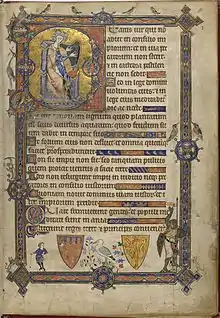 eatus vir qui non
abiit in consilio im
piorum et in via pec
catorum non stetit
et in cathedra pestilen
tie non sedit
Sed in lege domini
voluntas eius et in
lege eius meditabi
tur die ac nocte
tanquam lignum quod plantatum
est secus decursus aquarum quod fructum su
um dabit in tempore
Et folium eius non defluet et omnia quecum
prosperabuntur
Non sic impii non sic sed tanquam pulvis
quem proicit ventus a facie terre
Ideo non resurgunt impii in iudicio neque pec
catores in consilio iustorum
Quoniam novit dominus viam iustorum et
iter impiorum peribit
Quare fremuerunt gentes et populi me
ditati sunt inania
reges terre et principes convenerunt